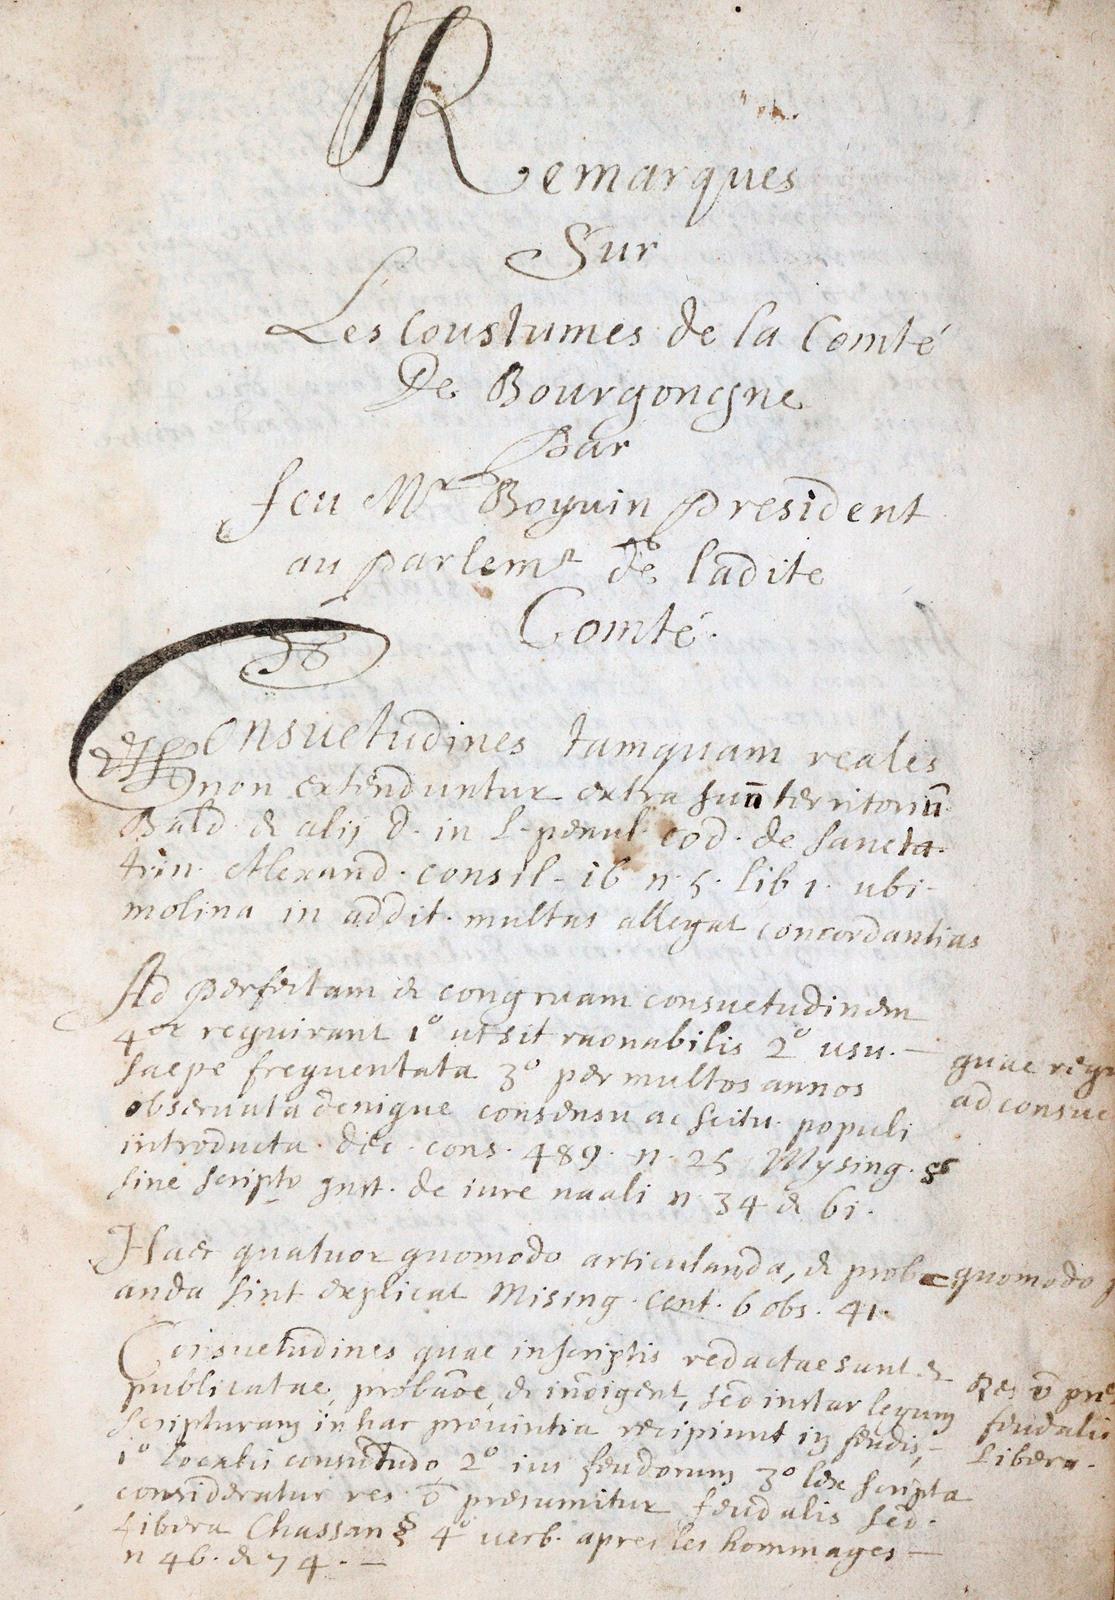 Remarques
Sur
Les Coustumes de la Comté
De Bourgongne
Par
feu Mr Boyuin President
au parlemt de ladite
Comté.
Consuetudines tamquam reales
non extenduntur extra suu̅ territoriu̅
Bald. & alij d. in l. penul. cod. de sancta
trin. Alexand. consil. 16 n. 5. lib 1. ubi
molina in addit. multas allegat concordantias
Ad perfectam & congruam consuetudinem
4or requirant 1o ut sit raonabilis 2o usu.
saepe frequentata 3o per multos annos
observata denique consensu ac scitu populi
introducta. dec. cons. 489. n. 25 Mysing. §
sine scripto Inst. de iure naali n 34 & 61.
quae requ
ad consue
Haec quatuor quomodo articulanda, & prob
anda sint explicat Mising. cent. 6 obs. 41.
quomodo p
Consuetudines quae inscriptis redactae sunt &
publicatae, probaõe & indigent, sed instar legum
scripturam in hac provintia recipiunt in feudis,
1o localis consuetudo 2o ius feudorum 3o lex scripta
consideratur res õ presumitur feudalis sed
libera Chassan § 4o verb. apres les hommages
n 46. & 74.
Res õ pre
feudalis
libera.